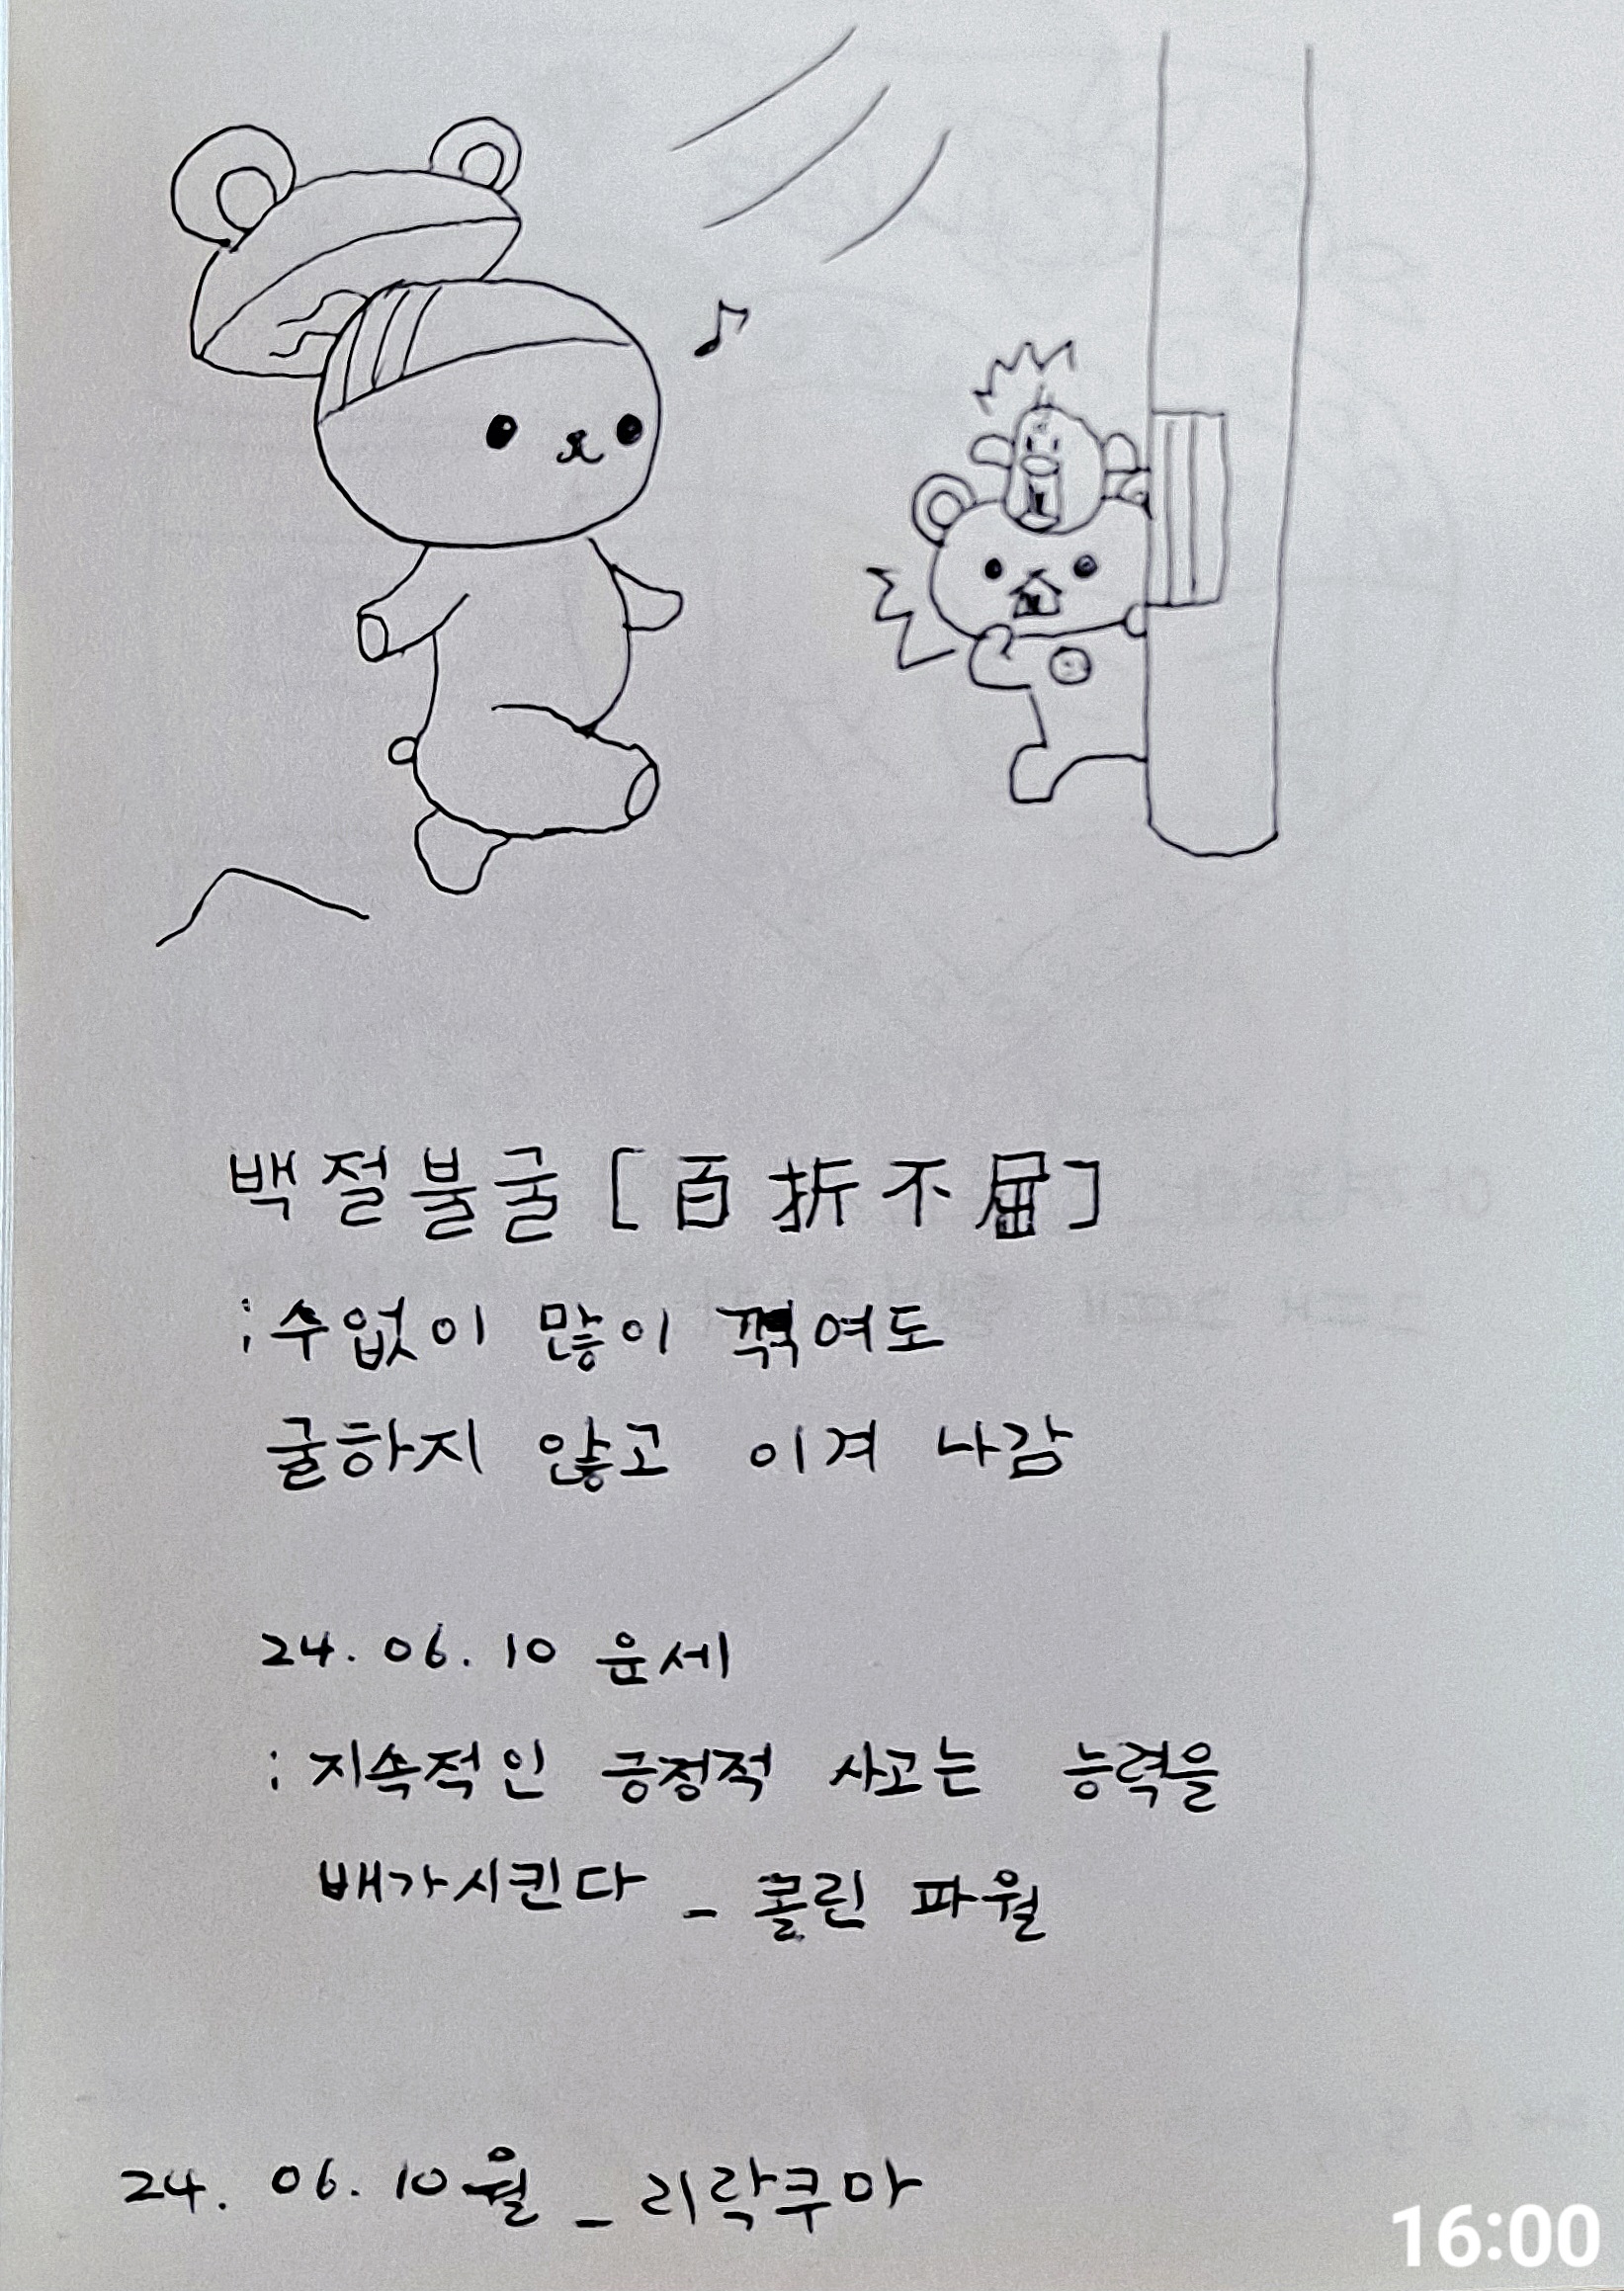 백절불굴 [百折不屈]
; 수없이 많이 꺾여도
굴하지 않고 이겨 나감
24. 06. 10 운세
: 지속적인 긍정적 사고는 능력을
배가시킨다 _ 콜린 파월
24. 06. 10 월 _ 리락쿠마
16:00